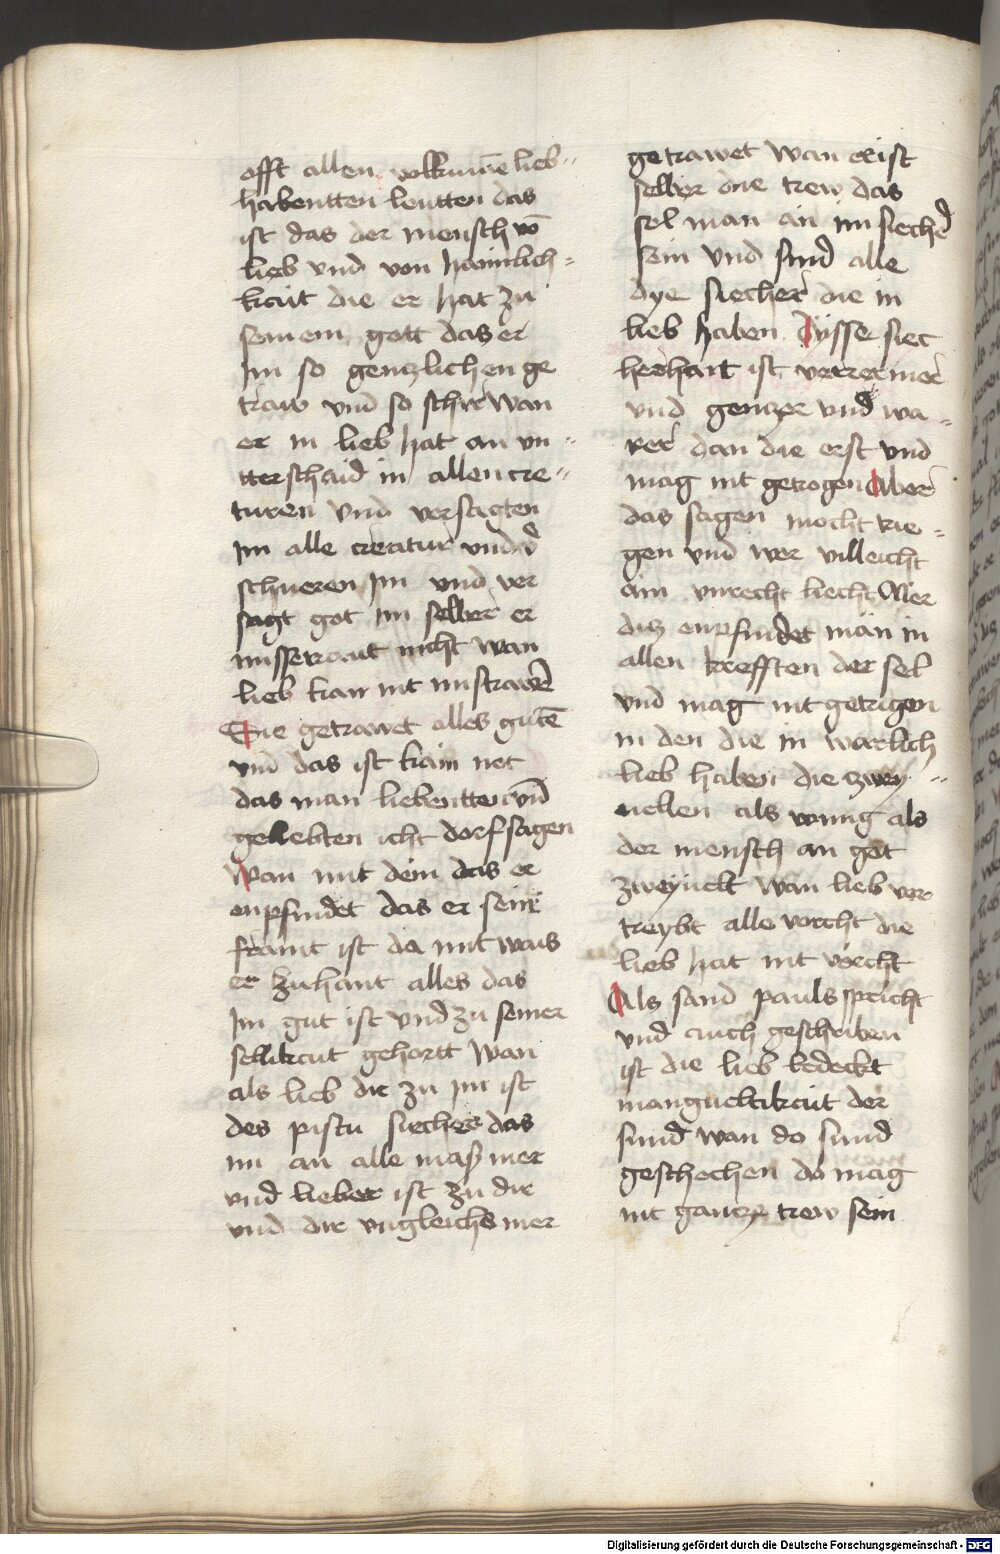 offt allen volkūme lieb⸗
habentten leutten das
ist das der mensch vō
lieb vnd von haimlich⸗
kait die er hat zu
seinem gott das er
Im so gentzlichen ge
traw vnd so schir Wan
er in lieb hat an vn⸗
tterschaid in allen cre⸗
turen vnd versagten
Im alle creatur vnd
schueren Im vnd ver
sagt got im selber er
missetraut nicht Wan
lieb kan nit mistrawē
Sie getrawet alles gutē
vnd das ist kain not
das man liebentten vn̄
geliebten icht dorf sagen
Wan mit dem das er
enpfindet das er sein
fraint ist da mit wais
er zuhant alles das
Im gut ist vnd zu seiner
selikait gehortt Wan
als lieb dir zu im ist
des pistu sicher das
im an alle masz mer
vnd lieber ist zu dir
vnd dir vngleichs mer
getrawet Wan er ist
selber die trew das
sol man an im sicher
sein vnd sind alle
dye sicher die in
lieb haben Dysse sic
herhait ist verrer mer
vnd gentzer vnd wa⸗
rer dan die erst vnd
mag nit getrogen Aber
das sagen mocht trie⸗
gen vnd wer villeicht
ain vnrecht liecht Aber
ditz enpfindet man in
allen krefften der sel
vnd mag nit getrigen
in den die in warlich
lieb haben die zwey⸗
uellen als winig als
der mensch an got
zweyuelt Wan lieb ver
treybt alle vorcht die
lieb hat nit vorcht
Als sand pauls spricht
vnd auch geschriben
ist die lieb bedeckt
mangueltikait der
sund wan do sund
geschechen do mag
nit gantze trew sein
Digitalisierung gefördert durch die Deutsche Forschungsgemeinschaft - DFG